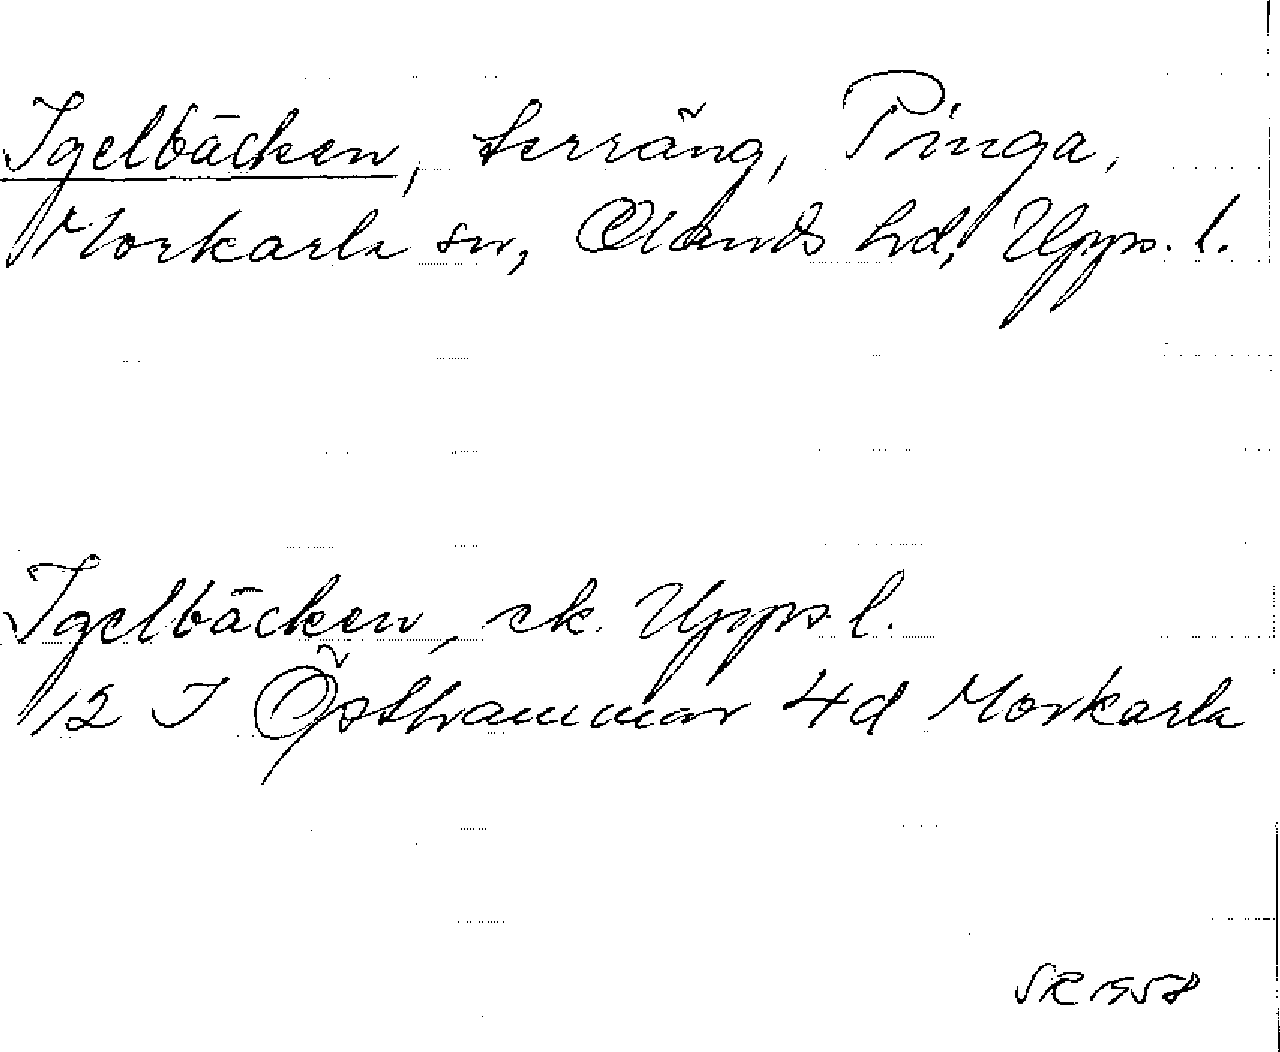 Igelbäcken, terräng, Pinga,
Morkarla sn, Olands hd, Upps. l.
Igelbäcken, ek. Upps. l.
12 I Östhammar 4d Morkarla
SR 1958